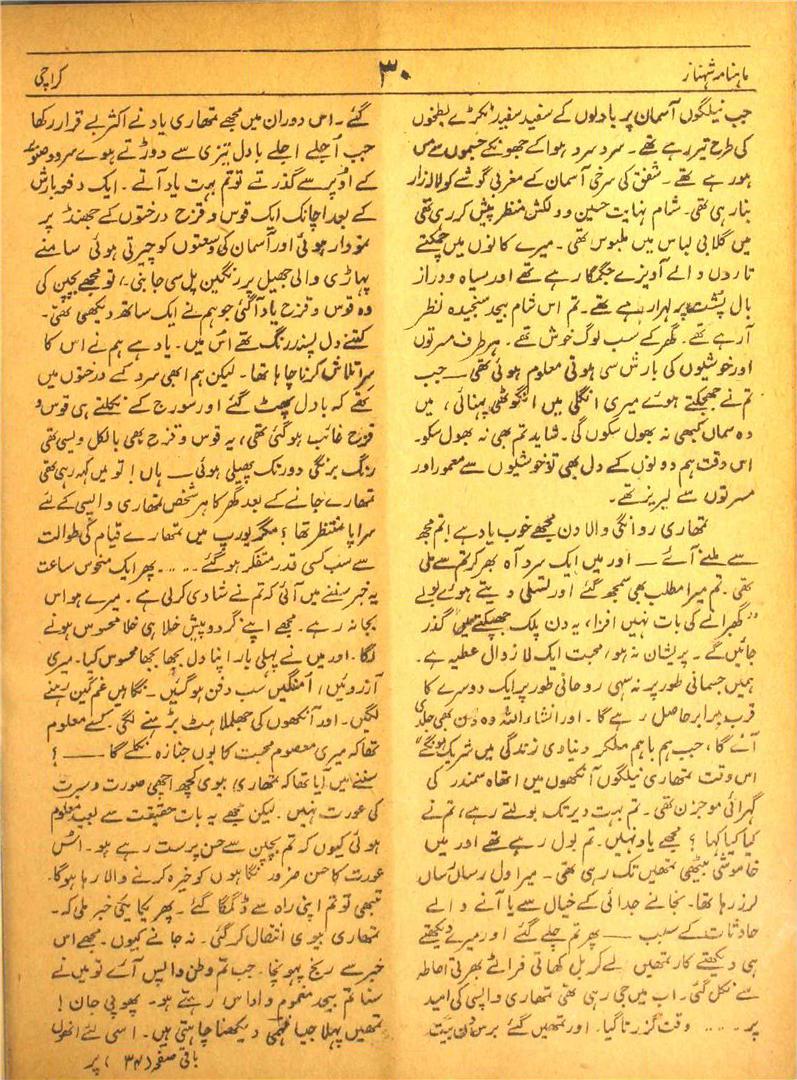 ماہنامہ شہناز
۳۰
کراچی
جب نیلگوں آسمان پر بادلوں کے سفید سفید ٹکڑے بطخوں
کی طرح تیر رہے تھے۔ سرد سرد ہوا کے جھونکے جسموں سے مس
ہو رہے تھے۔ شفق کی سرخی آسمان کے مغربی گوشے کو لالہ زار
بنا رہی تھی۔ شام نہایت حسین و دلکش منظر پیش کر رہی تھی
میں گلابی لباس میں ملبوس تھی۔ میرے کانوں میں چمکتے
تاروں والے آویزے جگمگا رہے تھے اور سیاہ و دراز
بال پشت پر لہرا رہے تھے۔ تم اس شام بیحد سنجیدہ نظر
آ رہے تھے۔ گھر کے سب لوگ خوش تھے۔ ہر طرف مسرتوں
اور خوشیوں کی بارش سی ہوتی معلوم ہوئی تھی — جب
تم نے جھجکتے ہوئے میری انگلی میں انگوٹھی پہنائی، میں
وہ سماں کبھی نہ بھول سکوں گی۔ شاید تم بھی نہ بھول سکو۔
اس وقت ہم دونوں کے دل بھی تو خوشیوں سے معمور اور
مسرتوں سے لبریز تھے۔
تمھاری روانگی والا دن مجھے خوب یاد ہے! تم مجھ
سے ملنے آئے — اور میں ایک سرد آہ بھر کر تم سے ملی
تھی۔ تم میرا مطلب بھی سمجھ گئے اور تسلی دیتے ہوئے بولے
"گھبرانے کی بات نہیں افزا، یہ دن پلک جھپکتے میں گذر
جائیں گے۔ پریشان نہ ہو، محبت ایک لازوال عطیہ ہے۔
ہمیں جسمانی طور پر نہ سہی روحانی طور پر ایک دوسرے کا
قرب برابر حاصل رہے گا۔ اور انشاء اللہ وہ دن بھی جلد ہی
آئے گا، جب ہم باہم ملکر دنیاوی زندگی میں شریک ہونگے"
اس وقت تمھاری نیلگوں آنکھوں میں اتھاہ سمندر کی
گہرائی موجزن تھی۔ تم بہت دیر تک بولتے رہے، تم نے
کیا کیا کہا؟ مجھے یاد نہیں۔ تم بول رہے تھے اور میں
خاموشی بیٹھی تمھیں تک رہی تھی۔ میرا دل رساں رساں
لرز رہا تھا۔ نجانے جدائی کے خیال سے یا آنے والے
حادثات کے سبب — پھر تم چلے گئے اور میرے دیکھتے
ہی دیکھتے کار تمھیں لے کر بل کھاتی فراٹے بھرتی احاطہ
سے نکل گئی۔ اب میں جی رہی تھی تمھاری واپسی کی امید
پر۔ .... وقت گزرتا گیا۔ اور تمھیں گئے برس دن بیت
گئے۔ اس دوران میں مجھے تمھاری یاد نے اکثر بے قرار رکھا
جب اُجلے اجلے بادل تیزی سے دوڑتے ہوئے سرو و صنوبر
کے اُوپر سے گذرتے تو تم بہت یاد آتے۔ ایک دفعہ بارش
کے بعد اچانک ایک قوس و قزح درختوں کے جھنڈ پر
نمودار ہوئی اور آسمان کی وسعتوں کو چیرتی ہوئی سامنے
پہاڑی والی جھیل پر رنگین پل سی جا بنی۔ تو مجھے بچپن کی
وہ قوس و قزح یاد آ گئی جو ہم نے ایک ساتھ دیکھی تھی۔
کتنے دل پسند رنگ تھے اُس میں۔ یاد ہے ہم نے اس کا
سرا تلاش کرنا چاہا تھا۔ لیکن ہم ابھی سرد کے درختوں میں
تھے کہ بادل پھٹ گئے اور سورج کے نکلتے ہی قوس و
قزح غائب ہو گئی تھی، یہ قوس و قزح بھی بالکل ویسی تھی
رنگ برنگی دور تک پھیلی ہوئی — ہاں! تو میں کہہ رہی تھی
تمھارے جانے کے بعد گھر کا ہر شخص تمھاری واپسی کے لئے
سراپا منتظر تھا؛ مگر یورپ میں تمھارے قیام کی طوالت
سے سب کسی قدر متفکر ہو گئے ..... پھر ایک منحوس ساعت
یہ خبر سننے میں آئی کہ تم نے شادی کر لی ہے۔ میرے ہواس
بجا نہ رہے۔ مجھے اپنے گرد و پیش خلا ہی خلا محسوس ہونے
لگا۔ اور میں نے پہلی بار اپنا دل بجھا بجھا محسوس کیا۔ میری
آرزوئیں، اُمنگیں سب دفن ہو گئیں۔ نگاہیں غم گین رہنے
لگیں۔ اور آنکھوں کی جھلملاہٹ بڑھنے لگی۔ کسے معلوم
تھا کہ میری معصوم محبت کا یوں جنازہ نکلے گا — ؟
سننے میں آیا تھا کہ تمھاری بیوی کچھ اچھی صورت و سیرت
کی عورت نہیں۔ لیکن مجھے یہ بات حقیقت سے بعید معلوم
ہوئی کیوں کہ تم بچپن سے حسن پرست رہے ہو۔ اُس
عورت کا حسن ضرور نگاہوں کو خیرہ کرنے والا رہا ہوگا۔
تبھی تو تم اپنی راہ سے ڈگمگا گئے۔ پھر یکا یک خبر ملی کہ۔
تمھاری بیوی انتقال کر گئی۔ نہ جانے کیوں۔ مجھے اس
خبر سے رنج پہونچا۔ جب تم وطن واپس آئے تو میں نے
سنا تم بیحد مغموم و اداس رہتے ہو۔ پھوپی جان!
تمھیں پہلا جیا دیکھنا چاہتی ہیں۔ اسی لئے انھوں
باقی صفحہ (۳۴) پر